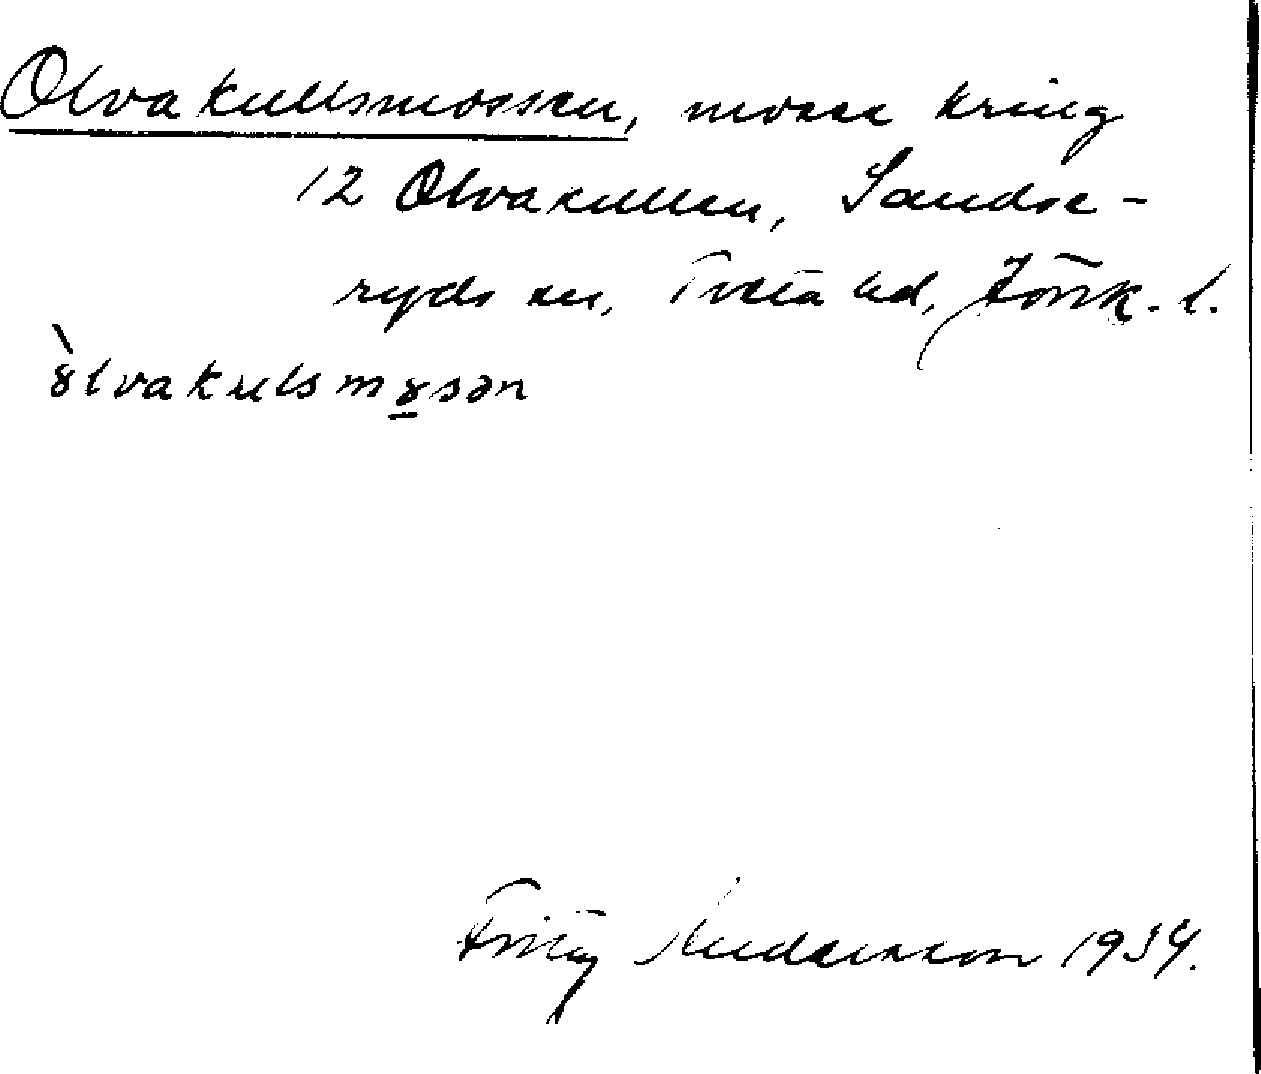 Olvakullsmossen, mosse kring
12 Olvakullen, Sandse-
ryds sn, Tveta hd, Jönk. l.
ɤ̀lvakulsmɤ̲sən
Fritz Andersson 1934.